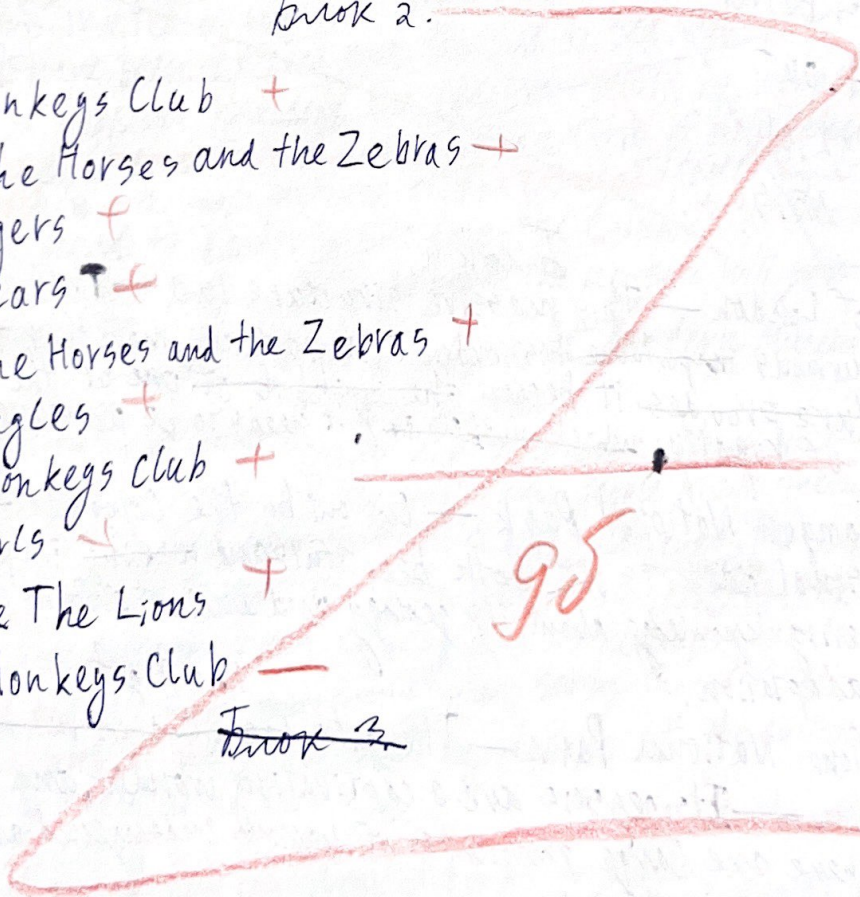 Блок 2.
nkeys Club +
he Horses and the Zebras +
gers +
ears +
he Horses and the Zebras +
gles +
onkeys Club +
rls +
e The Lions +
onkeys Club —
9б
Блок 3.